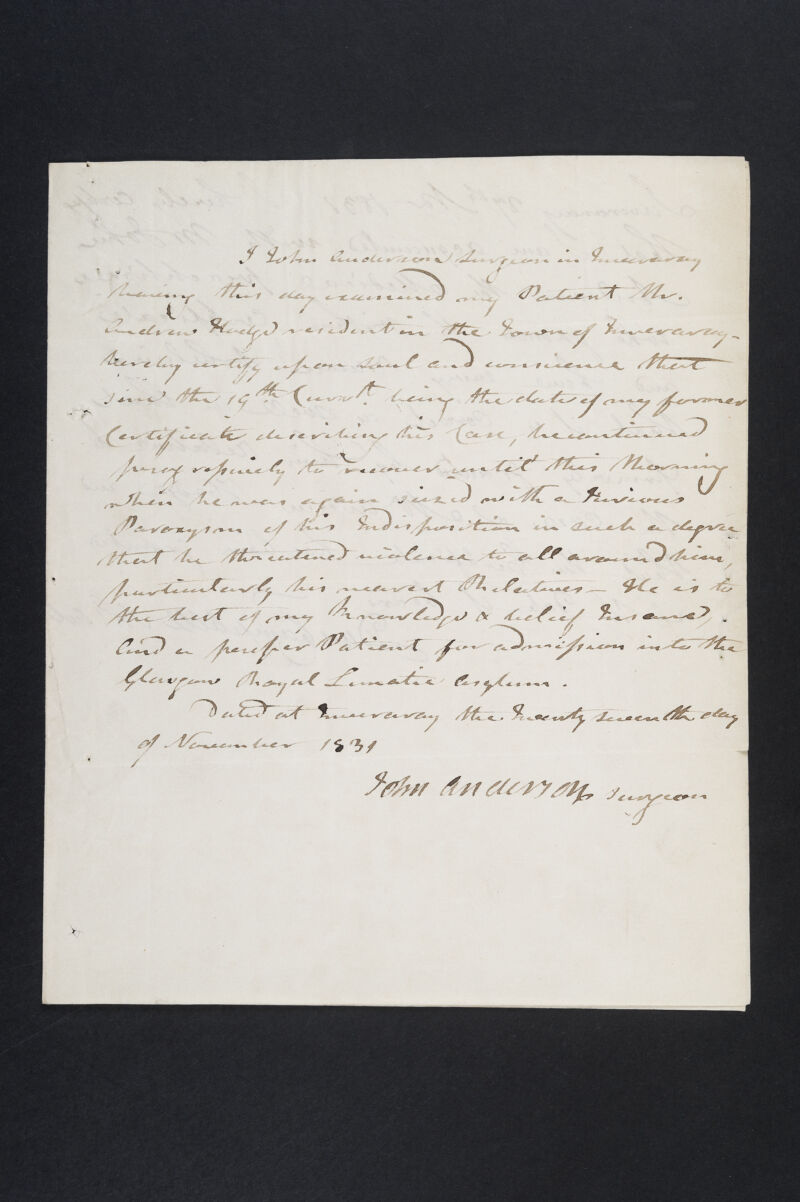 I John Anderson Surgeon in Inveraray
having this day examined my Patient Mr.
Andrew Hodge resident in the Town of Inveraray -
hereby certify upon soul and conscience that
since the 19th Currt. being the date of my former
Certificate describing his Case, he continued
progressively to recover until this Morning
when he was again seized with a Furious
Paroxysm of his Indisposition in such a degree
that he threatened violence to all around him,
particularly his nearest Relatives - He is to
the best of my Knowledge & belief Insane,
And a proper Patient for admission into the
Glasgow Royal Lunatic Asylum.
Dated at Inveraray the Twenty seventh day
of November 1831
John Anderson Surgeon